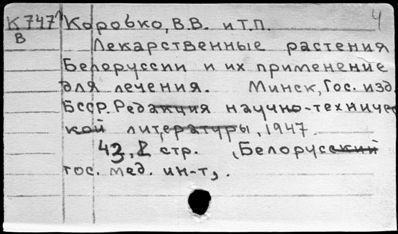 К747 Коробко, В.В. и т.п. 4
В
Лекарственные растения
Белоруссии и их применение
для лечения. Минск, Гос. изд.
Бсср. Редакция научно-техничес
кой литературы, 1947.
43, 2 стр. (Белорусский
гос. мед. ин-т).